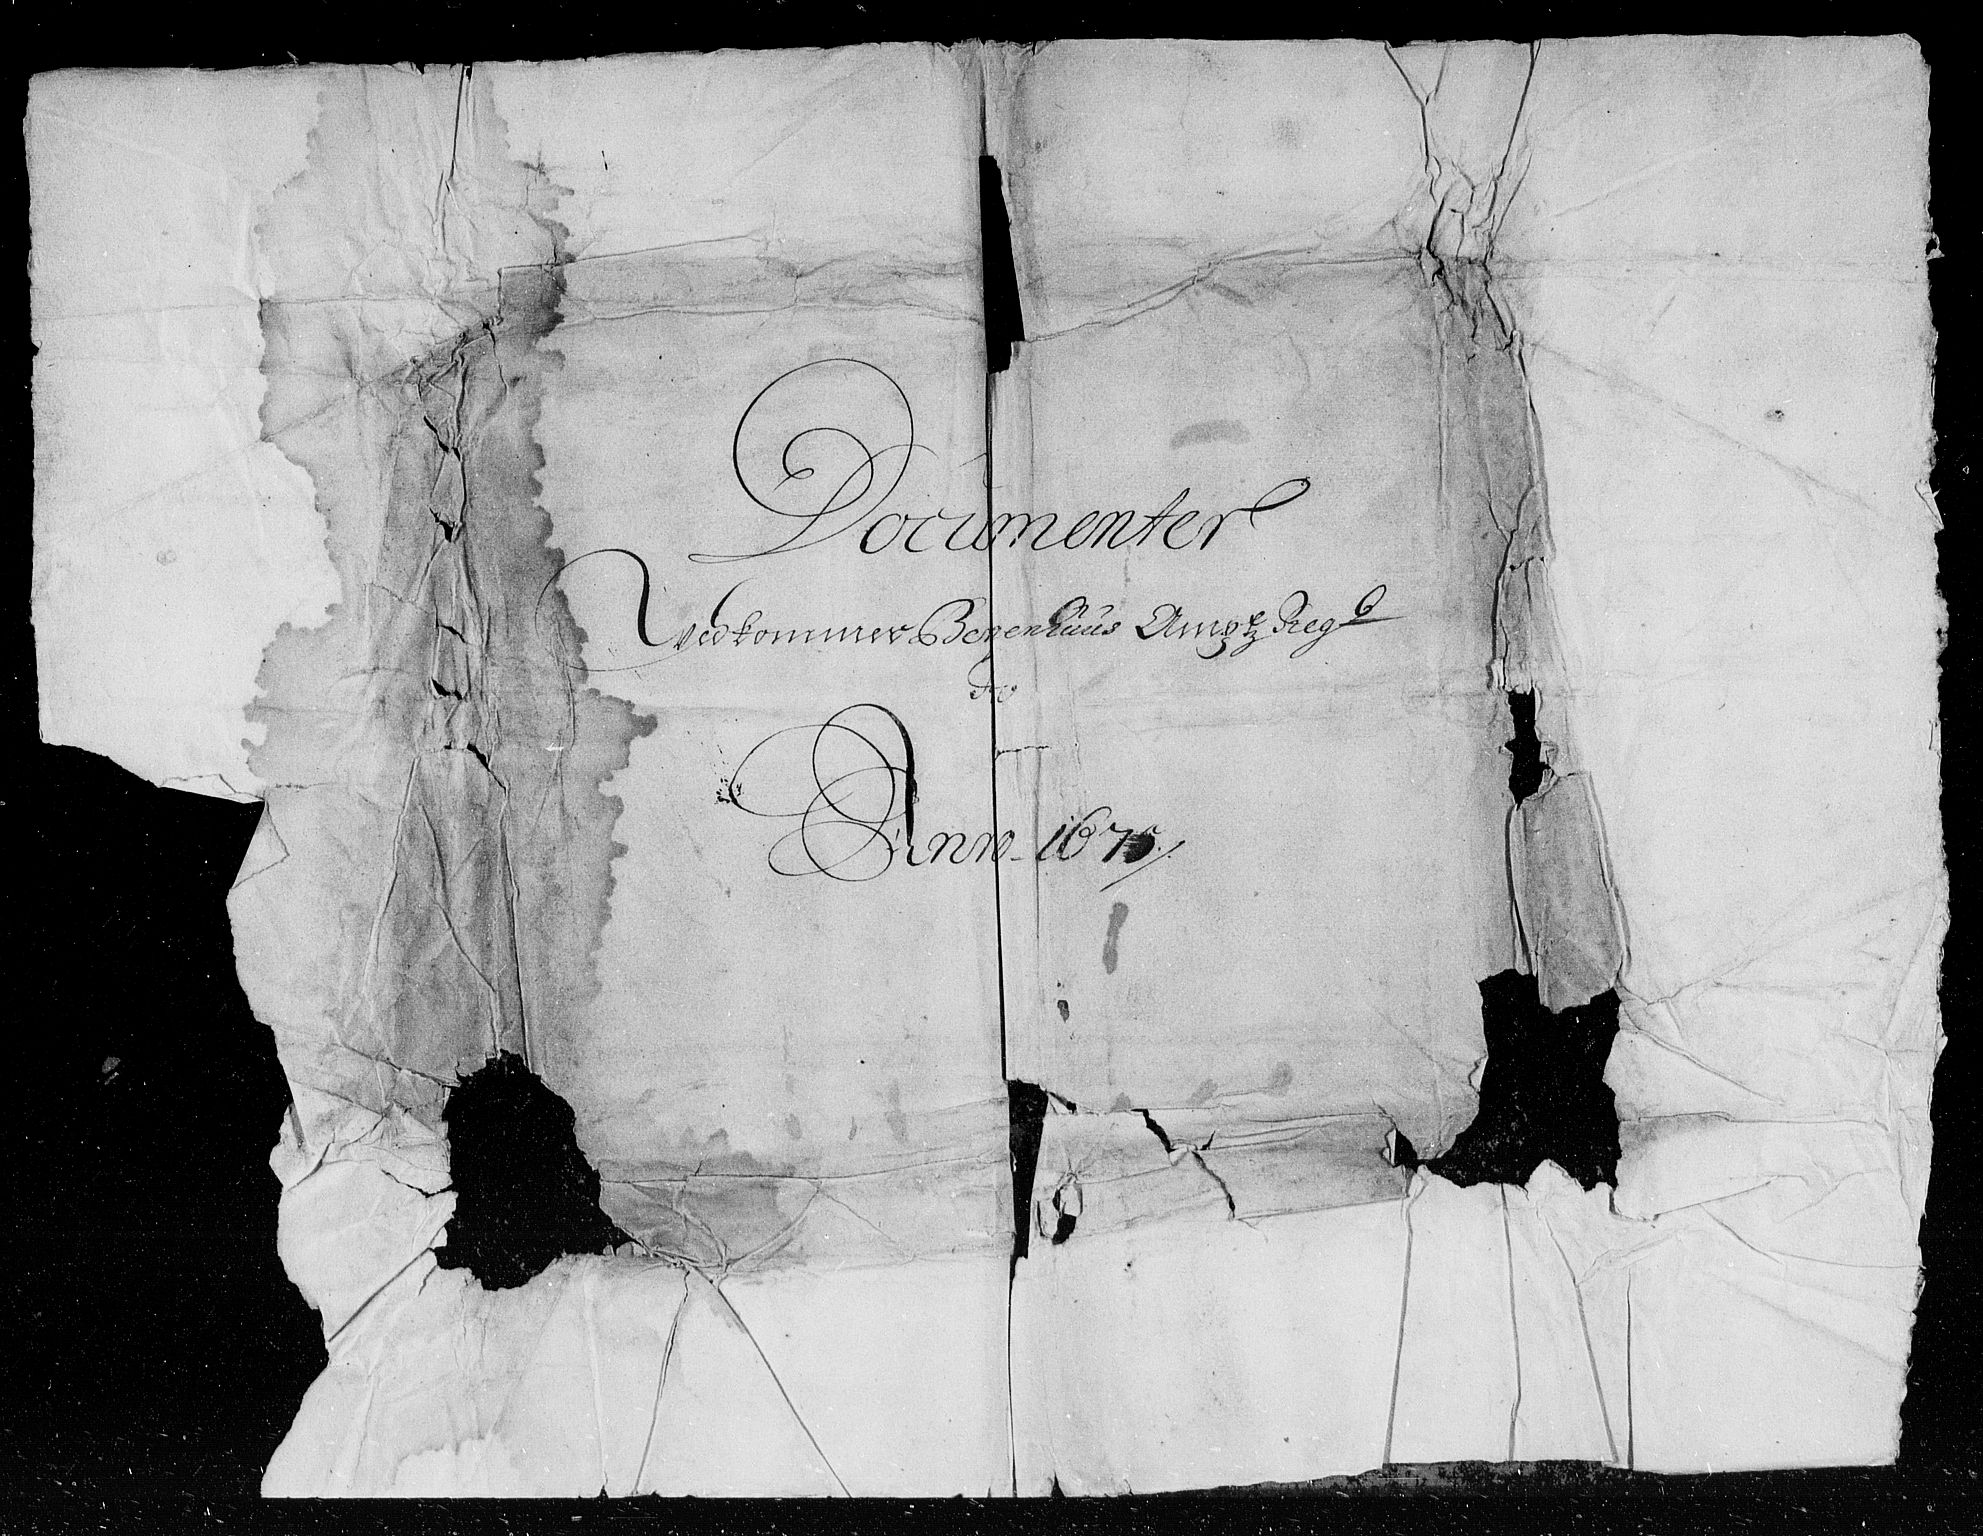 Documenter
Vedkommer Bergenhuus Amptz Regb
for
Anno 1675